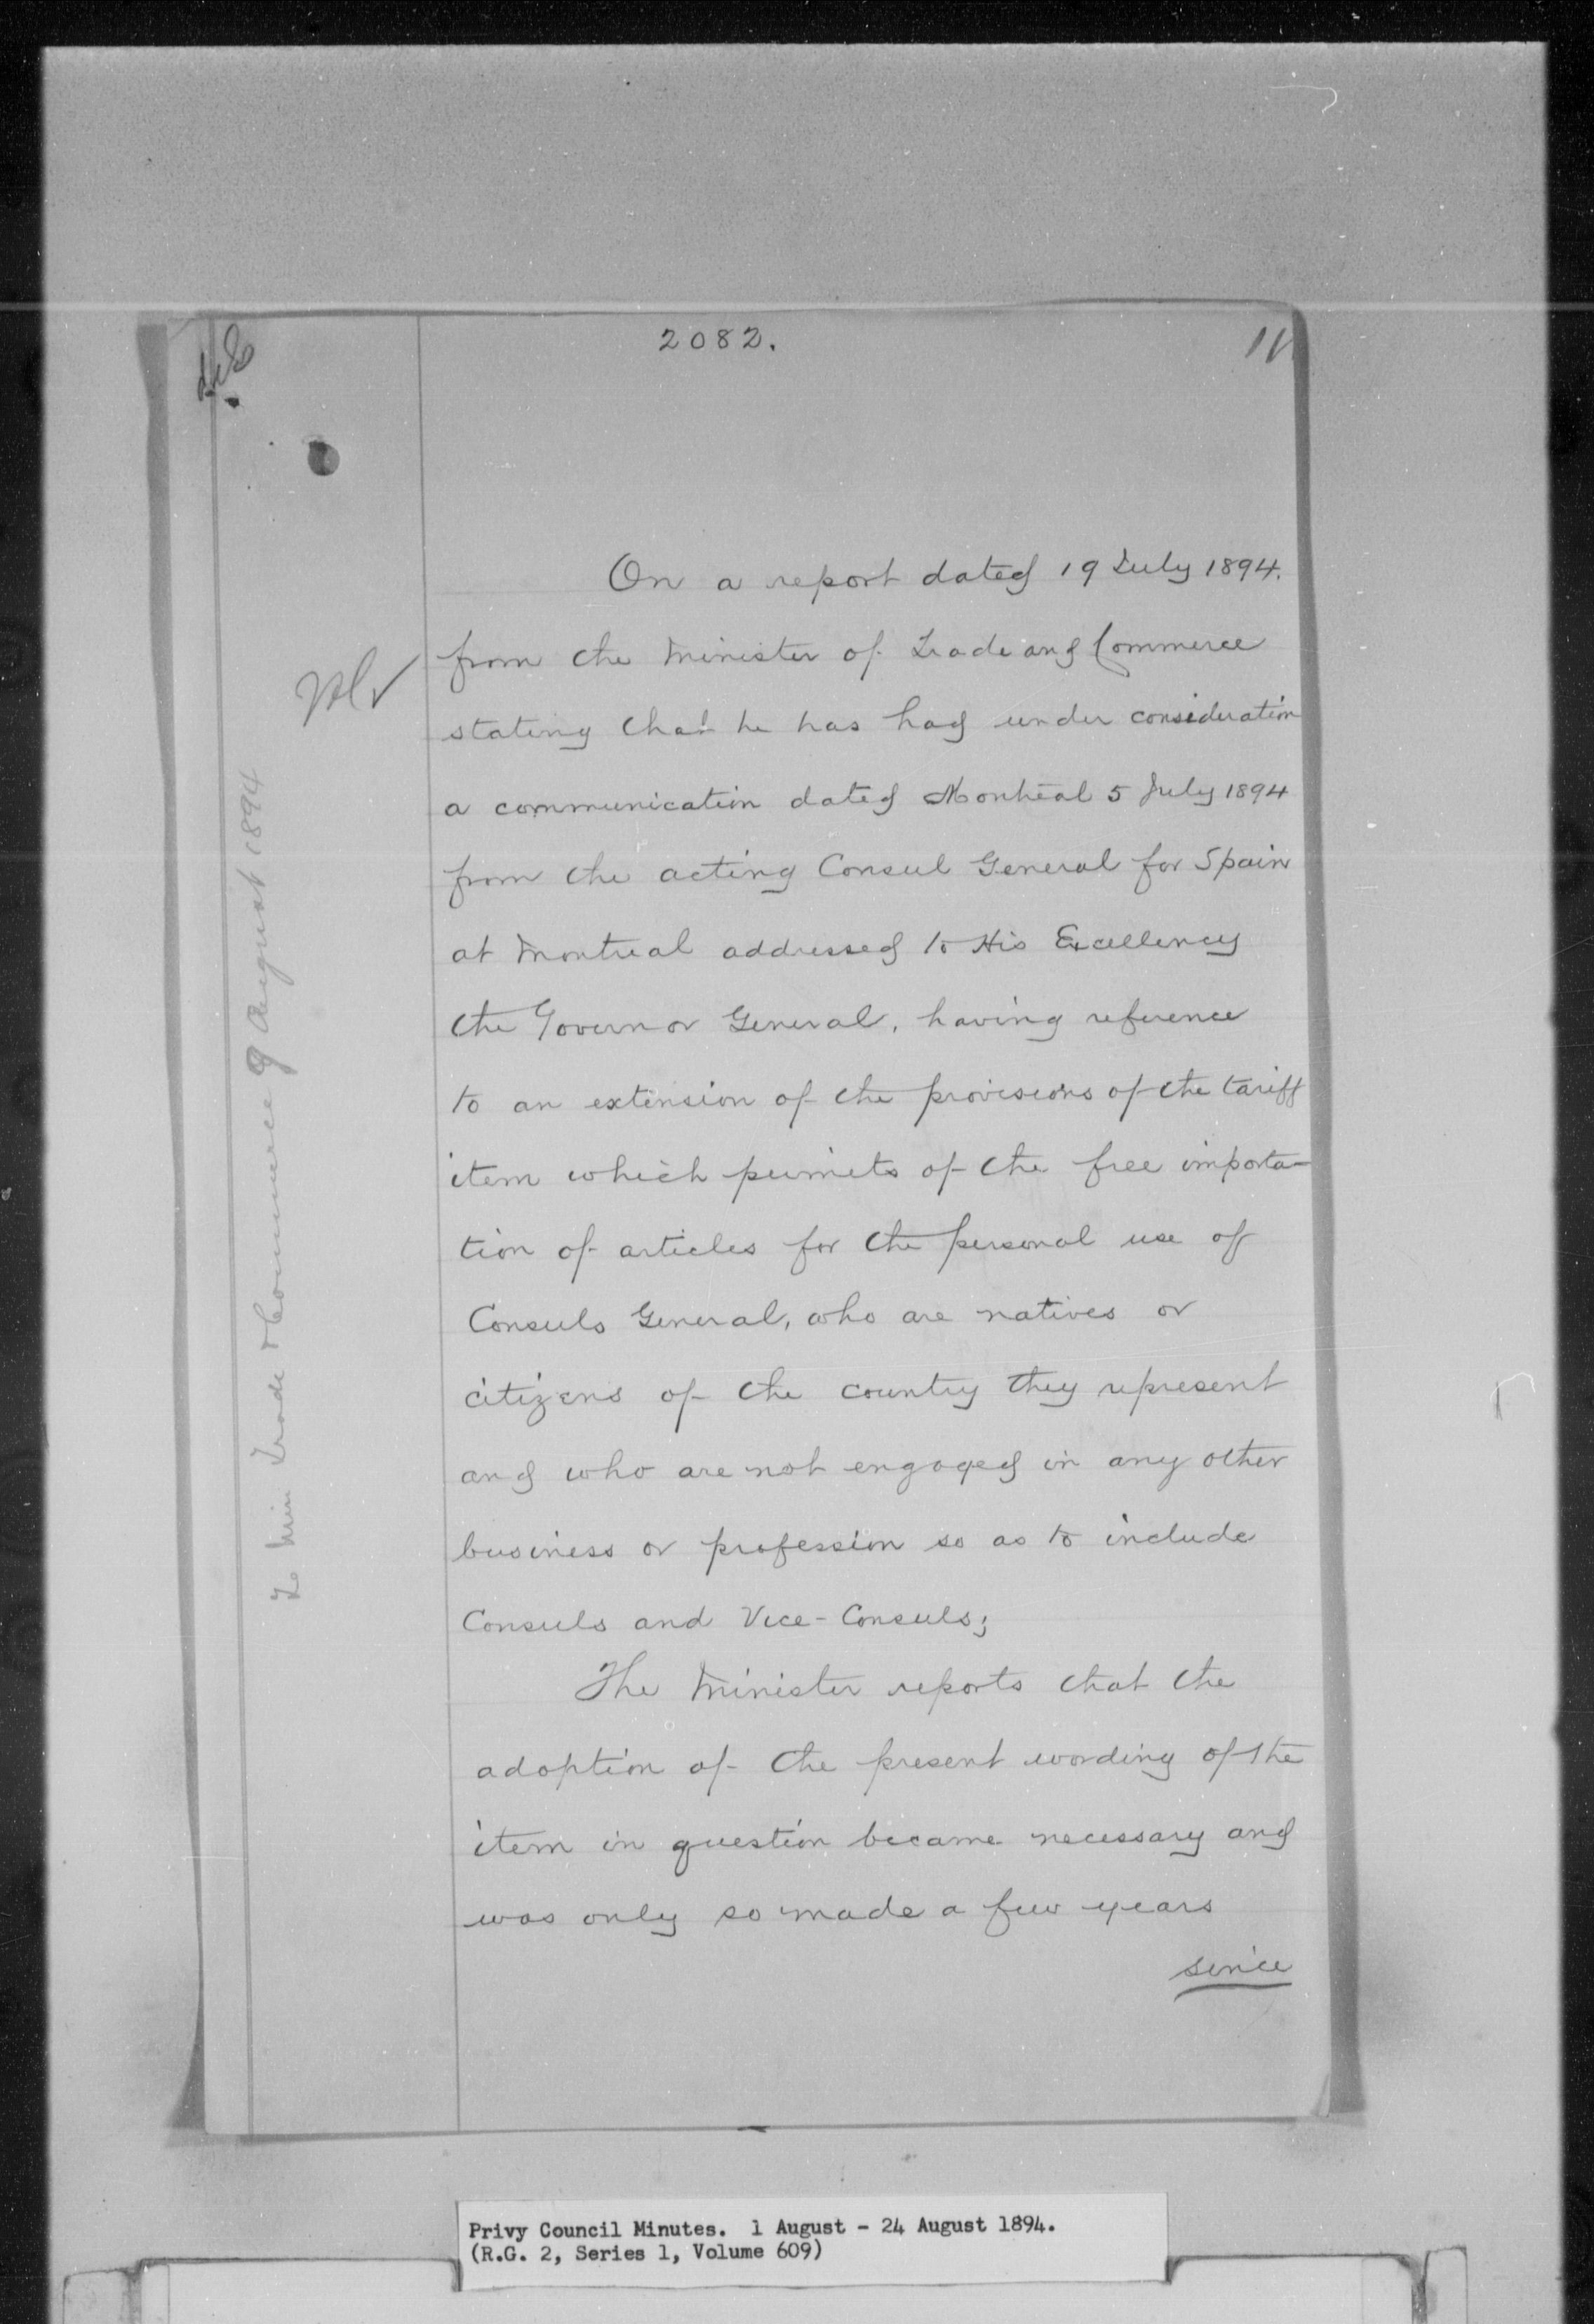 2082.
11
On a report dated 19 July 1894.
from the Minister of Trade and Commerce
stating that he has had under consideration
a communication dated Montreal 5 July 1894
from the acting Consul General for Spain
at Montreal addressed to His Excellency
the Governor General, having reference
to an extension of the provisions of the tariff
item which permits of the free importa-
tion of articles for the personal use of
Consuls General, who are natives or
citizens of the country they represent
and who are not engaged in any other
business or profession so as to include
Consuls and Vice-Consuls;
The Minister reports that the
adoption of the present wording of the
item in question became necessary and
was only so made a few years
since
To Min Trade & Commerce 9 August 1894
Privy Council Minutes. 1 August - 24 August 1894.
(R.G. 2, Series 1, Volume 609)